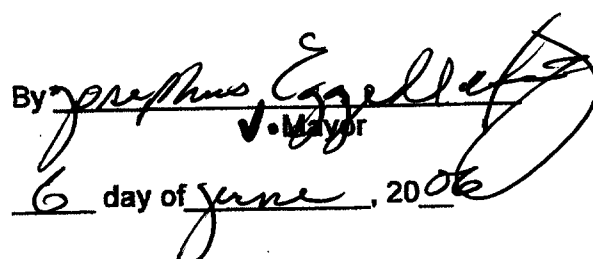 By Josephus Eggelletion
V. Mayor
6 day of June, 2006